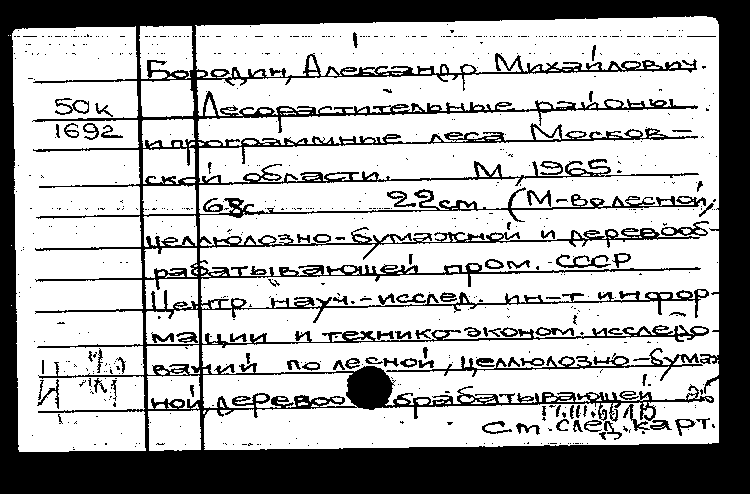 Бородин, Александр Михайлович.
50к Лесорастительные районы
1692 и программные леса Москов-
ской области. М, 1965.
68с. 22 см. (М-во лесной,
целлюлозно-бумажной и деревооб-
рабатывающей пром. СССР
Центр. науч.-исслед. ин-т инфор-
мации и технико-эконом. исследо-
ваний по лесной, целлюлозно-бумаж
ной, деревообрабатывающей
См. след. карт.